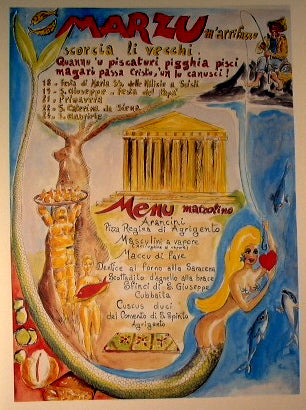 MARZU m'arrifazzo
scorcia li vecchi
Quannu 'u piscaturi pigghia pisci
magari passa Cristu, 'un lu canusci!
18 - Festa di Maria SS. delle Milizie a Scicli
19 - S. Giuseppe - Festa del Papà
21 - Primavera
24 - S. Caterina da Siena
Menu marzolino
Arancini
Pizza Regina di Agrigento
Masculini a vapore
Maccu di Fave
Dentice al forno alla Saracena
Scottadito d'agnello alla brace
Sfinci di S. Giuseppe
Cubbaita
Cuscus duci
del Convento di S. Spirito
Agrigento